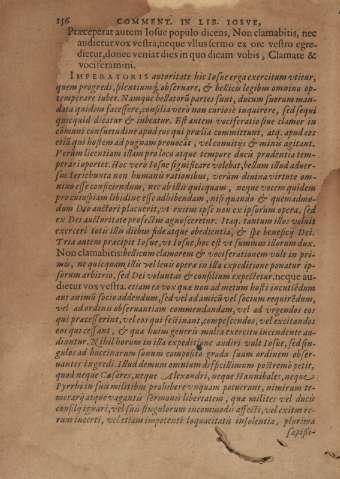 156 COMMENT. IN LIB. IOSVE,
Præceperat autem Iosue populo dicens, Non clamabitis, nec
audietur vox vestra, neque vllus sermo ex ore vestro egre-
dietur, donec veniat dies in quo dicam vobis, Clamate &
vociferamini.
IMPERATORIS autoritate hic Iosue erga exercitum vtitur,
quem progredi, silentiumq́; obseruare, & bellicis legibus omnino op-
temperare iubet. Namque bellatorū partes sunt, ducum suorum man-
data quidem facessere, consilia vero non curiose inquirere, sed sequi
quicquid dicatur & iubeatur. Est autem vociferatio siue clamor in
communi consuetudine apud eos qui prælia committunt, atq; apud eos
etiā qui hostem ad pugnam prouocāt, vel comitus & minis agitant.
Verùm licentiam illam pro loco atque tempore ducū prudentia tem-
perari oportet. Hoc vero Iosue significare volebat, bellum illud aduer-
sus Ierichuntia non humanis rationibus, verùm diuina virtute om-
nino esse conficiendum, nec ab illis quicquam, neque vocem quidem
pro cuiusquam libidine esse adhibendam, nisi quando & quemadmo-
dum Deo auctori placuerit, vt exitus ipse non ex ipsorum opera, sed
ex Dei auctoritate profectus agnosceretur. Itaq; tantum illos voluit
exerceri totis illis diebus fide atque obedientia, & spe beneficij Dei.
Tria autem præcipit Iosue, vt Iosue, hoc est vt summus illorum dux.
Non clamabitis: bellicum clamorem & vociferationem vult in pri-
mis, ne quicquam illi vel leuis opera in illa expeditione ponatur ip-
sorum arbitrio, sed Dei voluntas & consilium expectetur. neque au-
dietur vox vestra. etiam ea vox quæ non ad metum hosti incutiēdum
aut animū socio addendum, sed vel ad amicū vel socium requirēdum,
vel ad ordinis obseruantiam commendandam, vel ad vrgendos eos
qui præcesserint, vel eos qui festinant, compescendos, vel excitandos
eos qui cessant, & quæ huius generis multa exercitu incendente au-
diuntur. Nihil horum in illa expeditione audiri vult Iosue, sed sin-
gulos ad buccinarum sonum composito gradu suum ordinem obser-
uantes ingredi. Illud demum omnium difficillimum postremò petit,
quod neque Cæsares, neque Alexandri, neque Hannibales, neque
Pyrrhi in suis militibus prohibere vnquam potuerunt, nimirum te-
merarij atque vagantis sermonis libertatem, quæ milites vel ducis
consilij ignari, vel suis singulorum incommodis affecti, vel exitus re-
rum incerti, vel etiam impotenti loquacitatis insolentia, plurima
sæpissi-